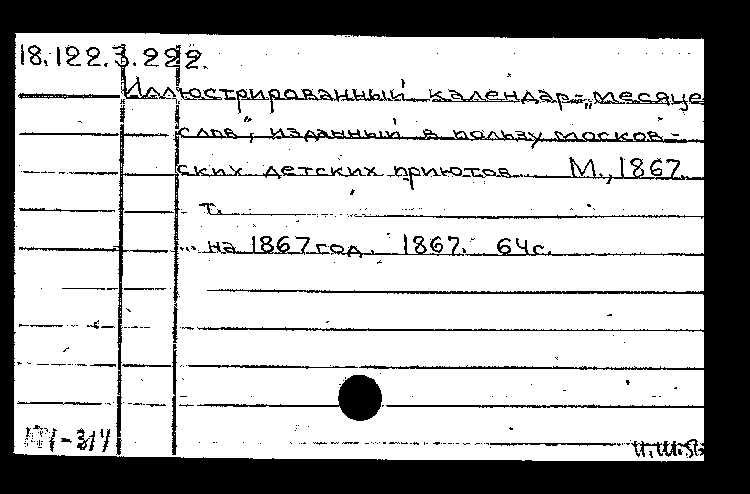 18.122.3.222.
Иллюстрированный календарь-„месяце
слов", изданный в пользу москов-
ских детских приютов М., 1867.
т.
... на 1867 год. 1867. 64с.
-314